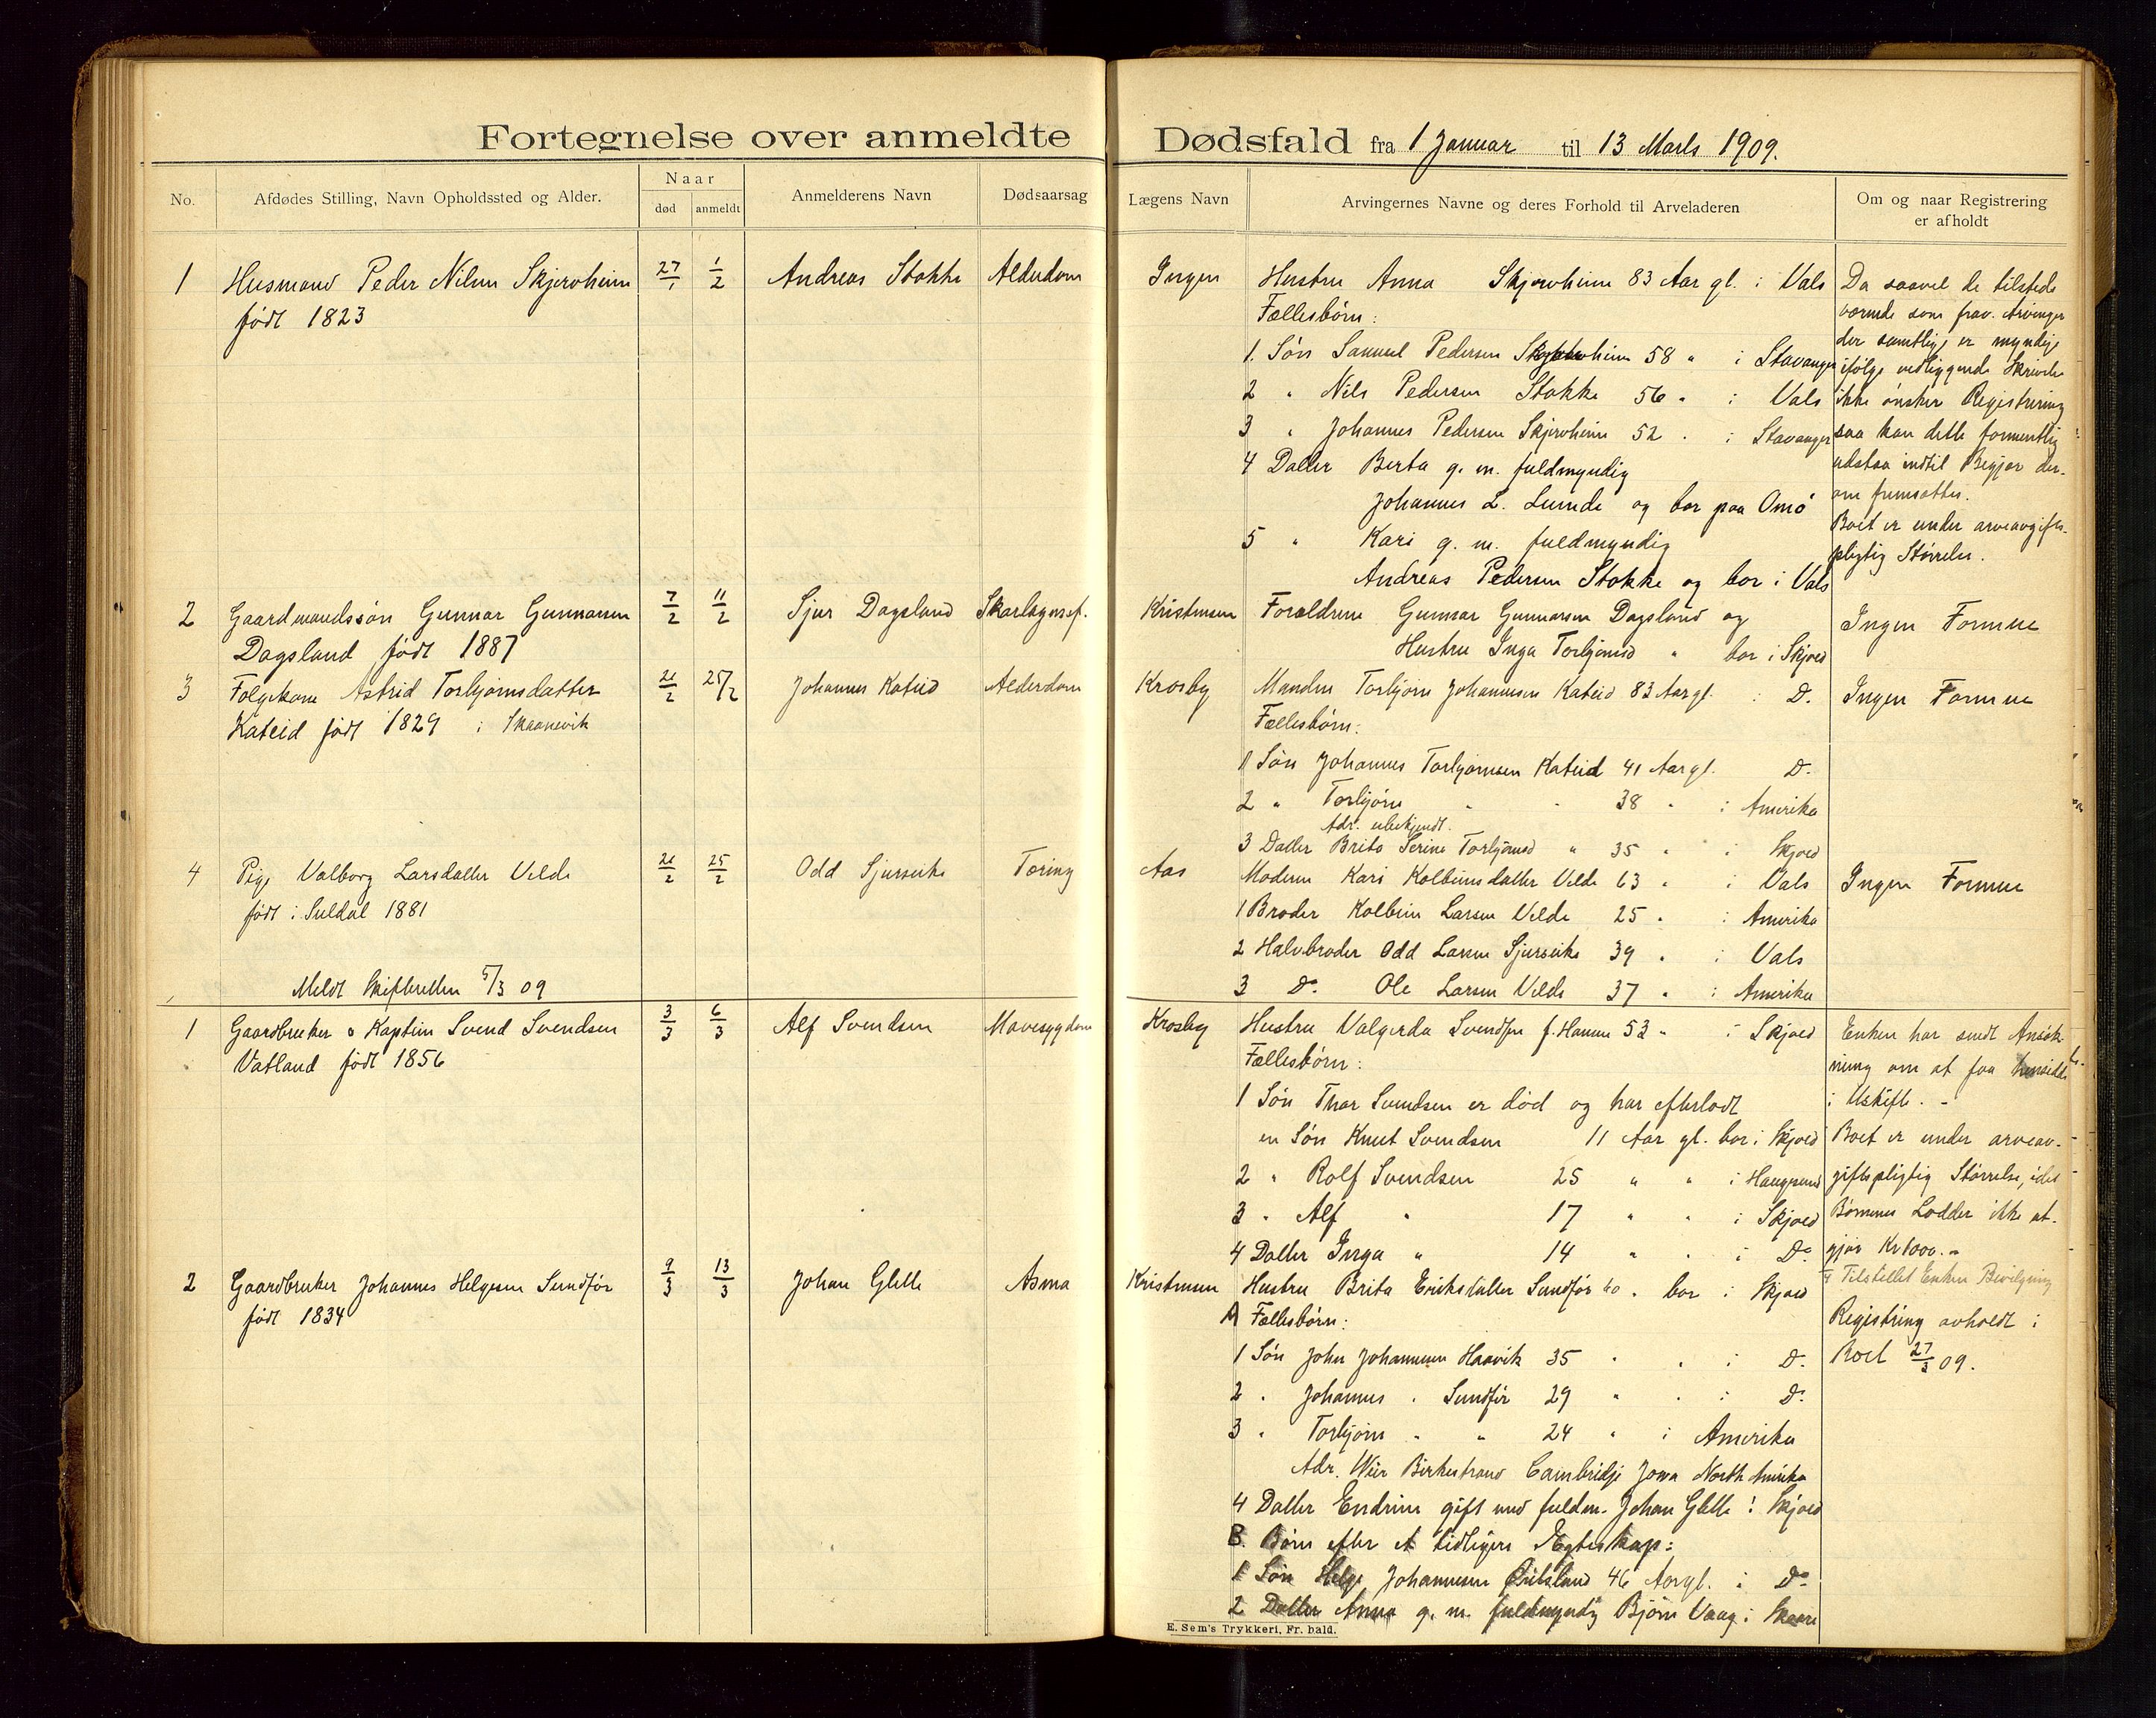 Fortegnelse over anmeldte Dødsfald fra 1 Januar til 13 Marts 1909.
No. Afdødes Stilling, Navn Opholdssted og Alder. Naar død anmeldt Anmelderens Navn Dødsaarsag Lægens Navn Arvingernes Navne og deres Forhold til Arveladeren Om og naar Registrering er afholdt
1 Husmand Peder Nilsen Skjeroheim 27/1 1/2 Andreas Stokke Alderdom Ingen Hustru Anna Skjeroheim 83 Aar gl. i Vats
født 1823
Fællesbörn:
1. Sön Samuel Pedersen Skjeroheim 58 " i Stavanger
2 " Nils Pedersen Stokke 56 " i Vats
3 " Johannes Pedersen Skjeroheim 52 " i Stavanger
4 Datter Berta g. m. fuldmyndig
Johannes L. Lunde og bor paa Omö
5 " Kari g. m. fuldmyndig
Andreas Pedersen Stokke og bor i Vats
Da saavel de tilstede
værende som frav. Arvinger
der samtlige er myndige
ifölge vedliggende Skrivelse
ikke önsker Registrering
saa kan dette formentlig
udstaa indtil Begjær der-
om fremsættes.
Boet er under arveavgifts-
pligtig Störrelse.
2 Gaardmandssön Gunnar Gunnarsen 7/2 11/2 Sjur Dagsland Skarlagensf. Kristensen Forældrene Gunnar Gunnarsen Dagsland og Ingen Formue
Dagsland født 1887
Hustru Inga Torbjörnsd " bor i Skjold
3 Folgekone Astrid Torbjörnsdatter 21/2 25/2 Johannes Kateid Alderdom Krosby Manden Torbjörn Johannesen Kateid 83 Aar gl. i Do Ingen Formue
Kateid født 1829 i Skaanevik
Fællesbörn:
1 Sön Johannes Torbjörnsen Kateid 41 Aar gl. Do
2 " Torbjörn " " 38 " i Amerika
Adr. ubekjendt.
3 Datter Brita Serine Torbjörnsd " 35 " i Skjold
4 Pige Valborg Larsdatter Velde 21/2 25/2 Odd Sjurseike Tæring Aas Moderen Kari Kolbeinsdatter Velde 63 " i Vats Ingen Formue
født i Suldal 1881
1 Broder Kolbein Larsen Velde 25 " i Amerika
2 Halvbroder Odd Larsen Sjurseike 39 " i Vats
3 Do Ole Larsen Velde 37 " i Amerika
Meldt Skifteretten 5/3 09
1 Gaardbruker o Kaptein Svend Svendsen 3/3 6/3 Alf Svendsen Mavesygdom Krosby Hustru Valgerda Svendsen f. Hamre 53 " i Skjold
Vatland født 1856
Fællesbörn:
1 Sön Thor Svendsen er död og har efterladt
en Sön Knut Svendsen 11 Aar gl. bor i Skjold
2 " Rolf Svendsen 25 " " i Haugesund
3 " Alf " 17 " " i Skjold
4 Datter Inga " 14 " " i Do
Enken har sendt Ansök-
ning om at faa hensidde
i Uskifte. -
Boet er under arveav-
giftspligtig Störrelse, idet
Börnenes Lodder ikke ut-
gjör Kr 1000.-
Tilstillet Enken Bevilgning
2 Gaardbruker Johannes Helgesen Sundför 9/3 13/3 Johan Glette Asma Kristensen Hustru Brita Eriksdatter Sundför 60 " bor i Skjold
født 1834
A Fællesbörn:
1 Sön John Johannesen Haavik 35 " " i Do
2 " Johannes " Sundför 29 " " i Do
3 " Torbjörn " " 24 " i Amerika
Adr. Weir Birkestrand Cambridje Jowa North Amerika
4 Datter Endrine gift med fuldm. Johan Glette i Skjold
B. Börn efter et tidligere Ægteskap:
1 Sön Helge Johannesen 46 Aar gl. i Do
2 Datter Anna g. m. fuldmyndig Björn Vaag i Skaare
Registrering avholdt i
Boet 27/3 09.
E. Sem's Trykkeri, Fr. hald.